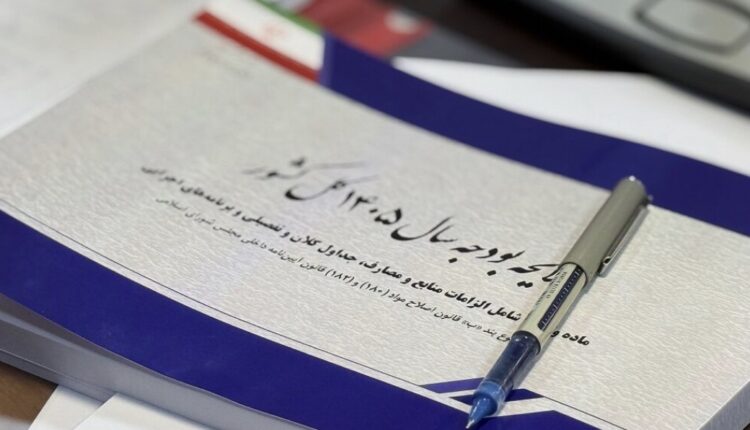 لایحه بودجه سال ۱۴۰۵ کل کشور
ماده و شامل الزامات منابع و مصارف، جداول کلان و تفصیلی و برنامه‌های اجرایی
بند «ب» قانون اصلاح مواد (۱۸۰) و (۱۸۲) قانون آیین‌نامه داخلی مجلس شورای اسلامی